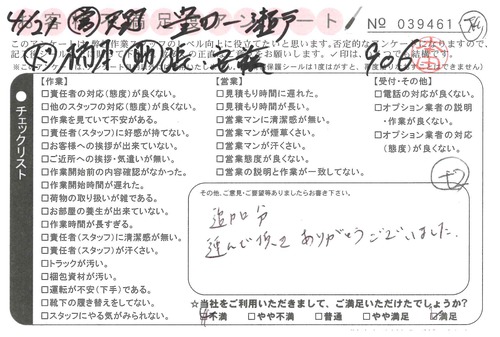 No 039461
このアンケートは弊
作業スタッフのレベル向上に役立てたいと思います。否定的なアンケートになりますので、
チェックリスト
【作業】
□責任者の対応(態度)が良くない。
□他のスタッフの対応(態度)が良くない。
□作業を見ていて不安がある。
□責任者(スタッフ)に好感が持てない。
□お客様への挨拶が出来ていない。
□ご近所への挨拶・気遣いが無い。
□作業開始前の内容確認がなかった。
□作業開始時間が遅れた。
□荷物の取り扱いが雑である。
□お部屋の養生が出来ていない。
□作業時間が長すぎる。
□責任者(スタッフ)に清潔感が無い。
□責任者(スタッフ)が汗くさい。
□トラックが汚い。
□梱包資材が汚い。
□運転が不安(下手)である。
□靴下の履き替えをしてない。
□スタッフにやる気がみられない。
【営業】
□見積もり時間に遅れた。
□見積もり時間が長い。
□営業マンに清潔感が無い。
□営業マンが煙草くさい。
□営業マンが汗くさい。
□営業態度が良くない。
□営業の説明と作業が一致してない。
【受付・その他】
□電話の対応が良くない。
□オプション業者の説明
・作業が良くない。
□オプション業者の対応
(態度)が良くない。
その他、ご意見・ご要望等ありましたらお書き下さい。
追加分
運んで頂き ありがとうございました。
☆当社をご利用いただきまして、ご満足いただけたでしょうか?
□不満 □やや不満 □普通 □やや満足 □満足